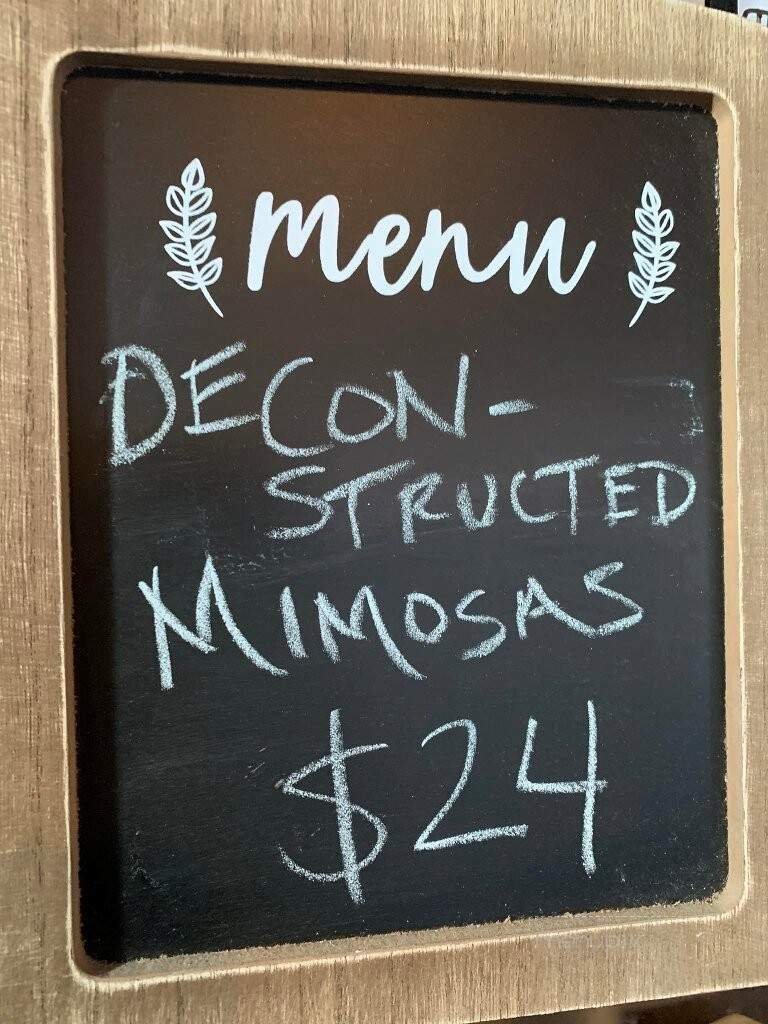 menu
DECON-
STRUCTED
MIMOSAS
$24